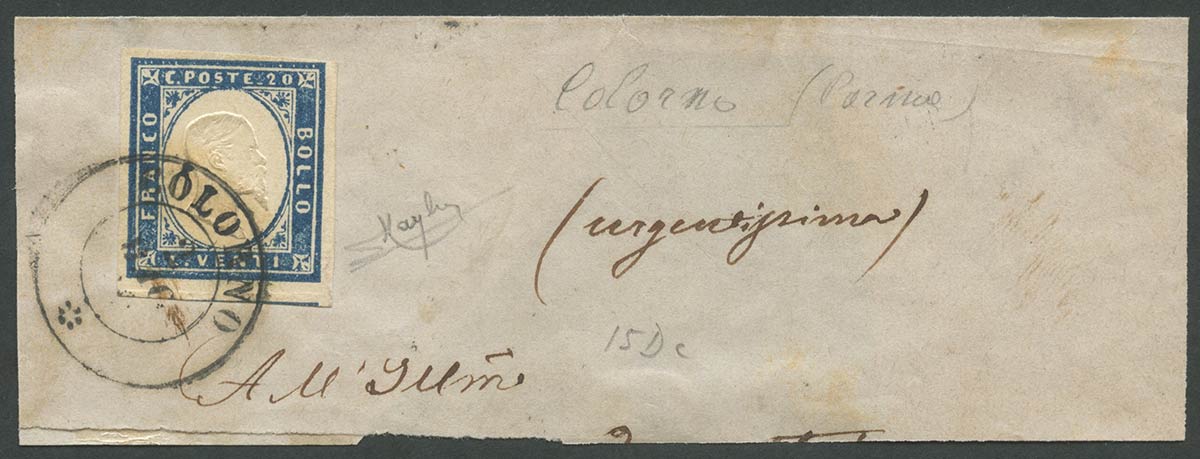 C. POSTE. 20
FRANCO
BOLLO
C. VENTI
COLORNO
Colorno (Parma)
(urgentissima)
15Dc
All' Illm̃o